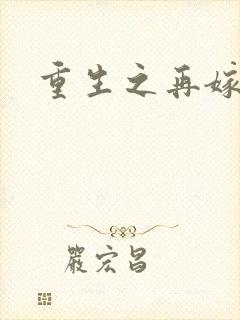 重生之再嫁
嚴宏昌